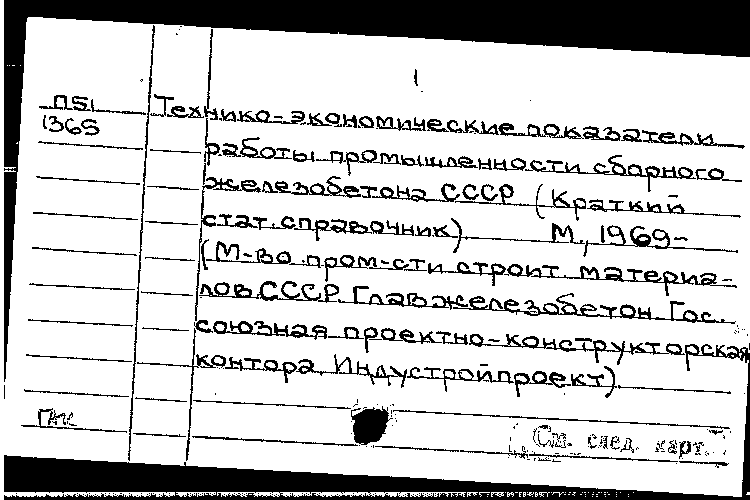 1
П51
1365
Технико-экономические показатели
работы промышленности сборного
железобетона СССР (Краткий
стат. справочник). М., 1969-
(М-во пром-сти строит. материа-
лов СССР. Главжелезобетон. Гос.
союзная проектно-конструкторская
контора Индустройпроект).
См. след. карт.